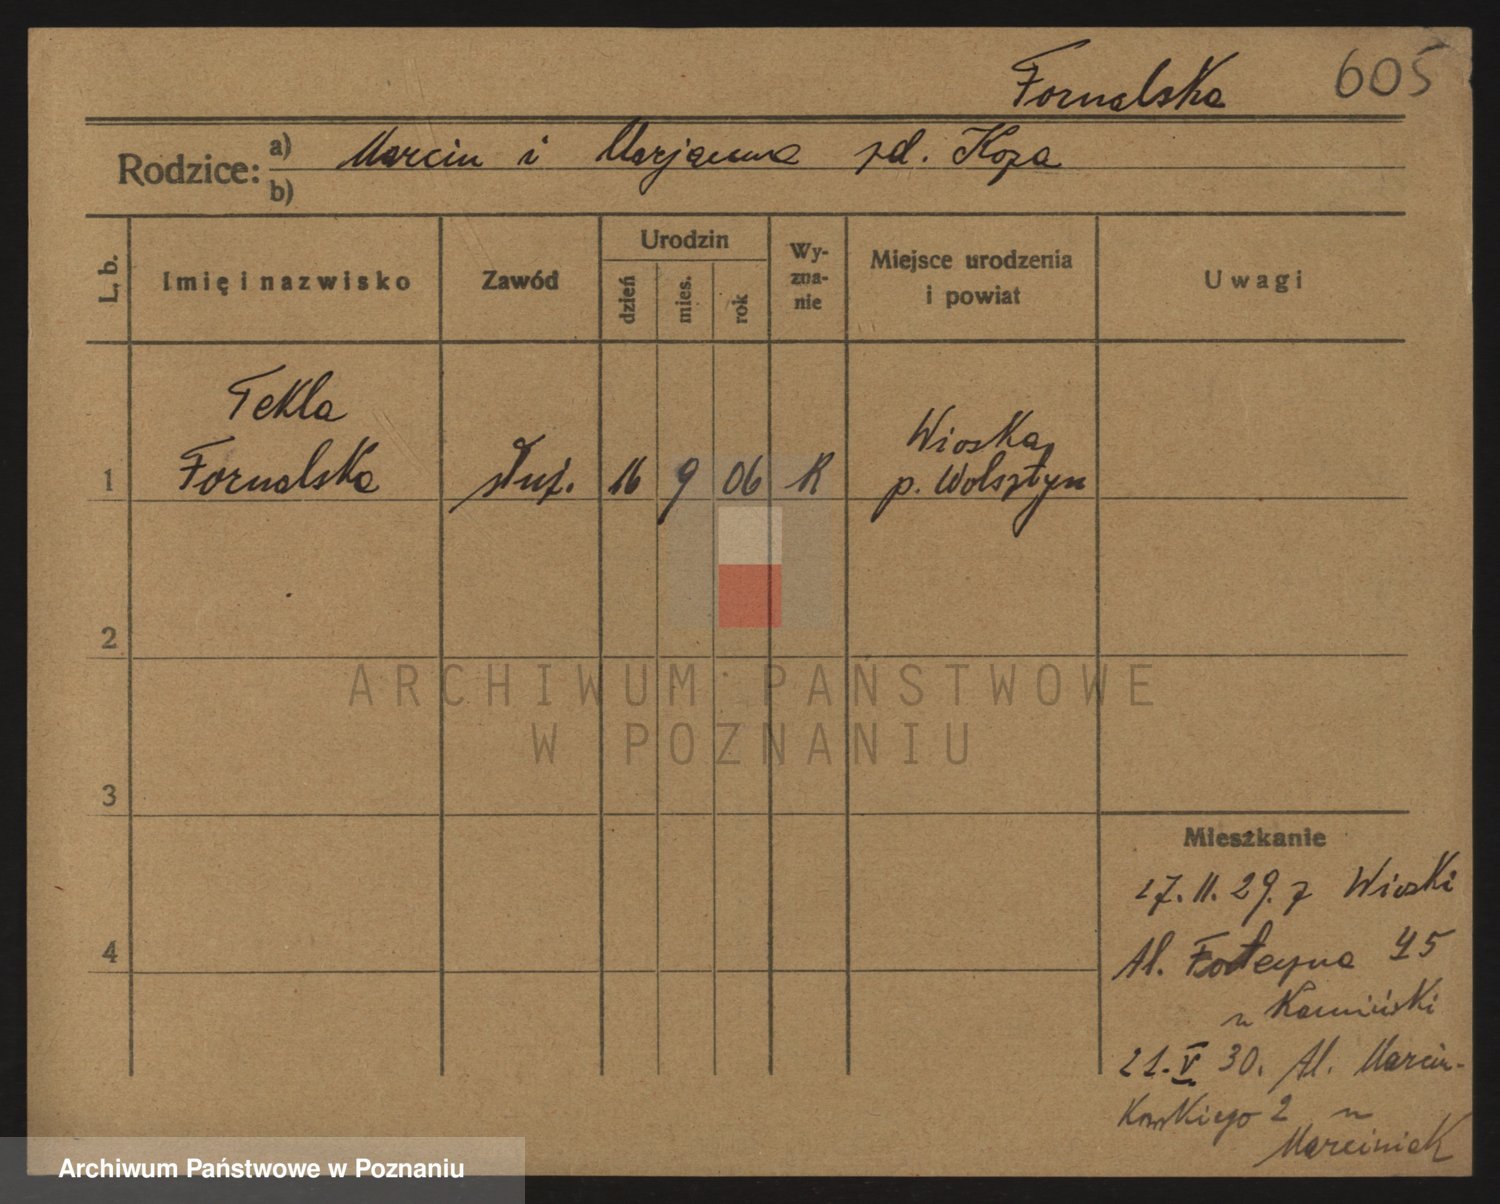 Fornalska 605
Rodzice: a) Marcin i Marjanna zd. Koza
b)
L. b. Imię i nazwisko Zawód Urodzin dzień mies. rok Wy-zna-nie Miejsce urodzenia i powiat Uwagi
Tekla
1 Fornalska służ. 16 9 06 R Wioska
p. Wolsztyn
2
ARCHIWUM PAŃSTWOWE
W POZNANIU
3
Mieszkanie
27.11.29. z Wioski
4
Al. 45
u Kamiński
21.V 30. Al. Marcin-
kowskiego 2 u
Marciniak
Archiwum Państwowe w Poznaniu